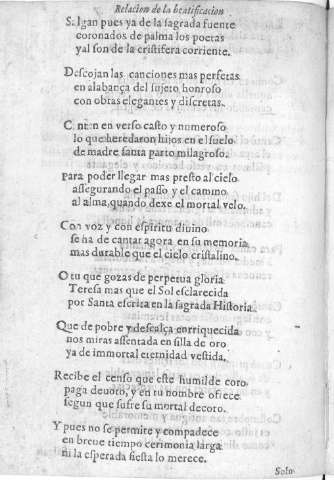 Relacion de la beatificacion
Salgan pues ya de la sagrada fuente
coronados de palma los poetas
y al son de la cristifera corriente.
Descojan las canciones mas perfetas
en alabança del sujeto honroso
con obras elegantes y discretas.
Canten en verso casto y numeroso
lo que heredaron hijos en el suelo
de madre santa parto milagroso.
Para poder llegar mas presto al cielo
assegurando el passo y el camino
al alma, quando dexe el mortal velo.
Con voz y con espiritu diuino
se ha de cantar agora en su memoria
mas durable que el cielo cristalino.
O tu que gozas de perpetua gloria
Teresa mas que el Sol esclarecida
por Santa escrita en la sagrada Historia.
Que de pobre y descalça enrriquecida
nos miras assentada en silla de oro
ya de immortal eternidad vestida.
Recibe el censo que este humilde coro
paga deuoto, y en tu nombre ofrece
segun que sufre su mortal decoro.
Y pues no se permite y compadece
en breue tiempo cerimonia larga
ni la esperada fiesta lo merece.
Solo